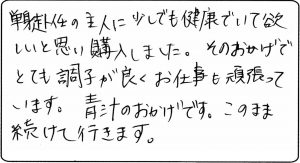 単身赴任の主人に少しでも健康でいて欲
しいと思い購入しました。そのおかげで
とても調子が良くお仕事も頑張って
います。青汁のおかげです。このまま
続けて行きます。